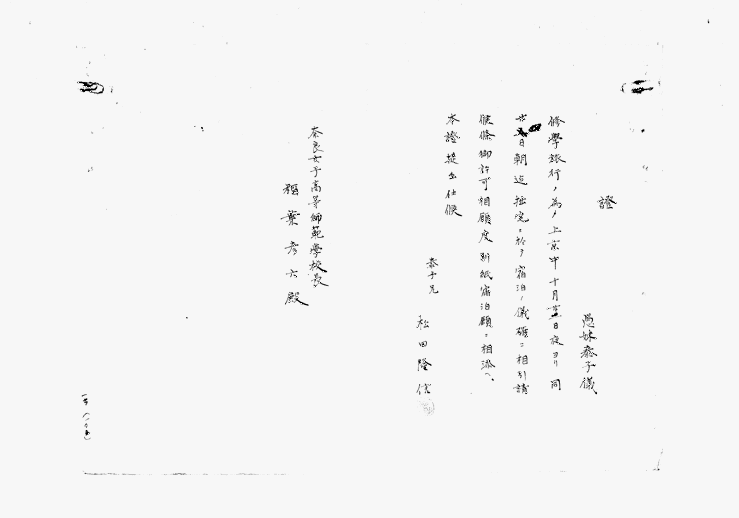 證
愚妹泰子儀
修學旅行ノ為メ上京中十月廿三日夜ヨリ同
廿五日朝迄拙宅ニ於テ宿泊ノ儀確ニ相引請
候條御許可相願度別紙宿泊願ニ相添ヘ
本證提出仕候
泰子兄
松田隆信
奈良女子高等師範學校長
槇葉彦六殿